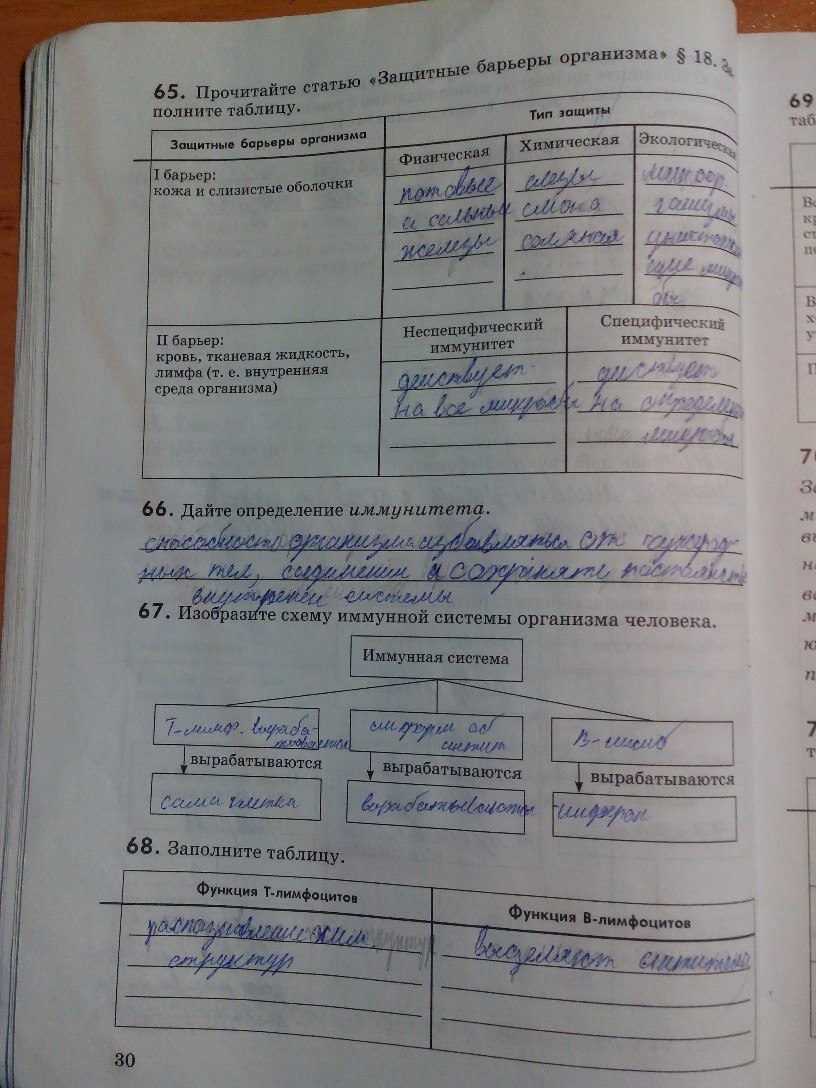 65. Прочитайте статью «Защитные барьеры организма» § 18. За-
полните таблицу.
Защитные барьеры организма
Тип защиты
Физическая
Химическая
Экологическая
I барьер:
кожа и слизистые оболочки
потовые
и сальные
железы
слезы
слюна
соляная
микроор
ганизмы
бы
II барьер:
кровь, тканевая жидкость,
лимфа (т. е. внутренняя
среда организма)
Неспецифический
иммунитет
Специфический
иммунитет
действует
на все микробы
действует
на определен
микробы
66. Дайте определение иммунитета.
способность организма избавляться от чужерод
ных тел, соединений и сохранять
внутренней системы
67. Изобразите схему иммунной системы организма человека.
Иммунная система
Т-лимф. выраба-
тываются
В-лимф
вырабатываются
вырабатываются
вырабатываются
сама клетка
68. Заполните таблицу.
Функция Т-лимфоцитов
Функция В-лимфоцитов
структур
выделяют
30
69
таб
В
70